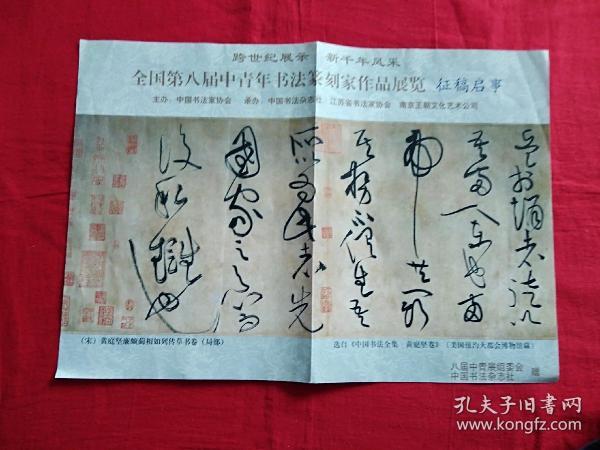 跨世纪展示 新千年风采
全国第八届中青年书法篆刻家作品展览 征稿启事
主办：中国书法家协会 承办：中国书法杂志社 江苏省书法家协会 南京王朝文化艺术公司
吾兩人在也兩
虎共
其勢不俱生吾
所以為此者先
國家之急而
後私讎也
（宋）黄庭坚廉颇蔺相如列传草书卷（局部）
选自《中国书法全集·黄庭坚卷》（美国纽约大都会博物馆藏）
八届中青展组委会
中国书法杂志社 赠
孔夫子旧书网
www.kongfz.com